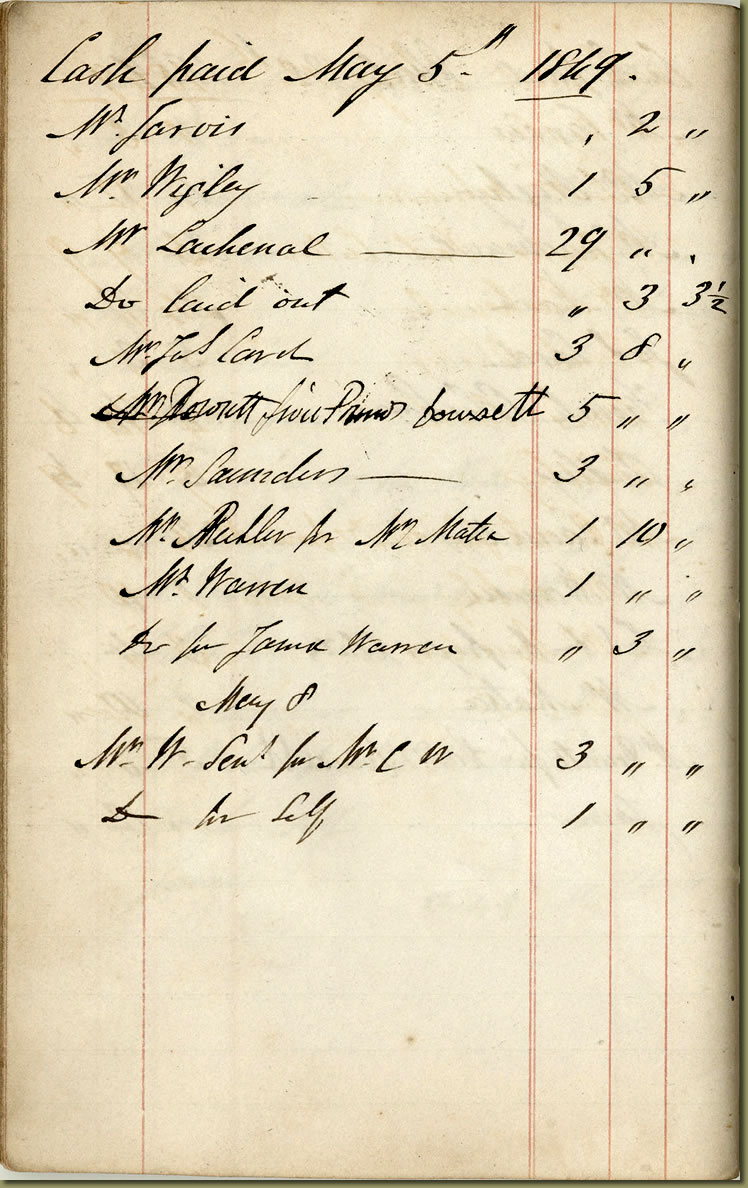 Cash paid May 5th 1849.
Mr. Jarvis , 2 "
Mr Wigley 1 5 "
Mr Lachenal — 29 " .
Do laid out " 3 3½
Mr. Jas Card 3 8 "
Dowsett 5 " "
Mr. Saunders — 3 " "
Mr. for Mr 1 10 "
Mr. Warren 1 " "
Do for Warren " 3 "
May 8
Mr. W. Sent for Mr C W 3 " "
Do for Self 1 " "